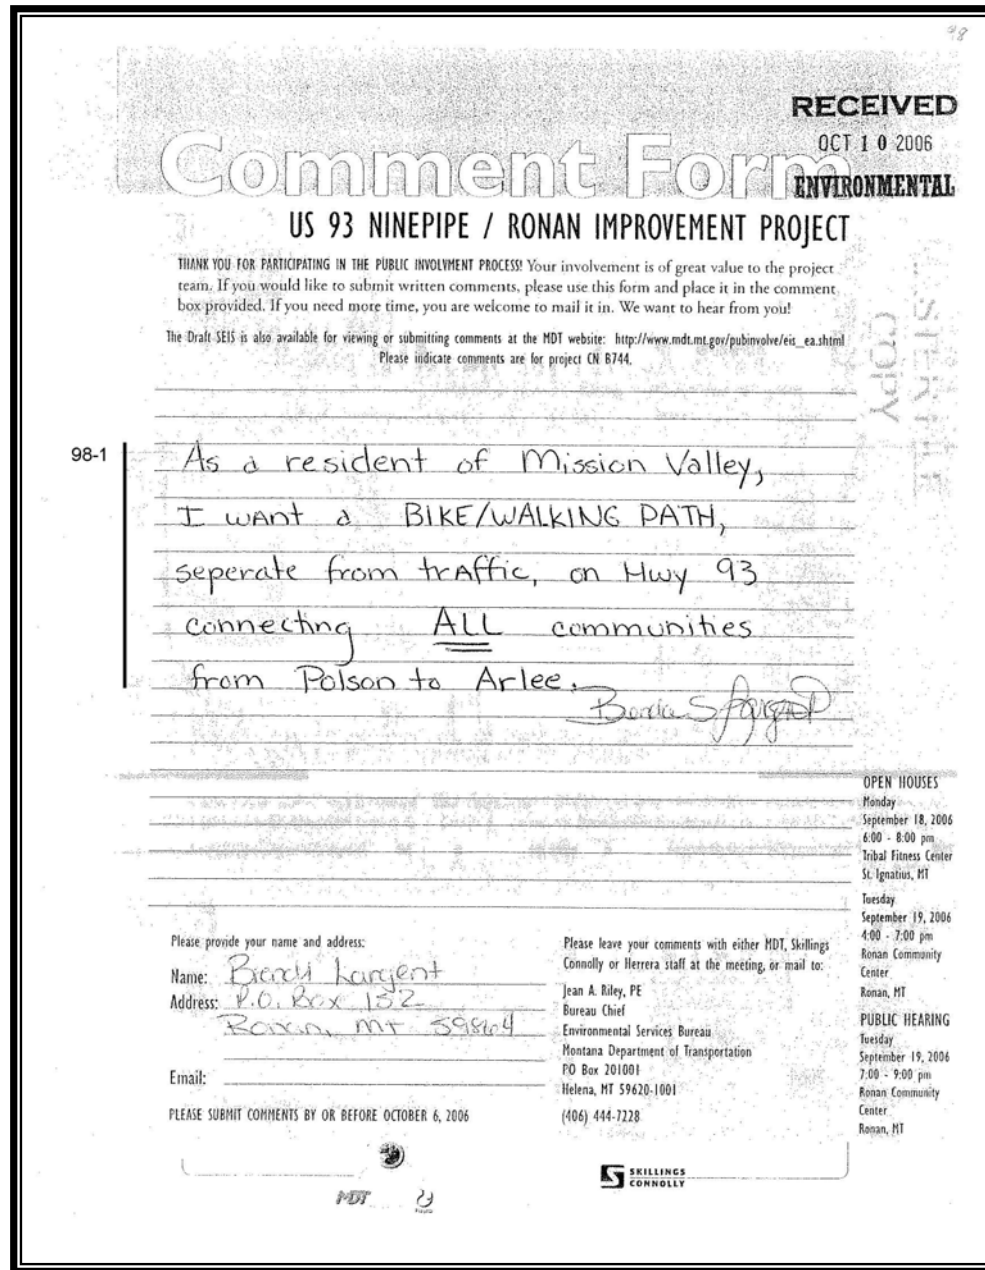 98
RECEIVED
OCT 10 2006
ENVIRONMENTAL
Comment Form
US 93 NINEPIPE / RONAN IMPROVEMENT PROJECT
THANK YOU FOR PARTICIPATING IN THE PUBLIC INVOLVMENT PROCESS! Your involvement is of great value to the project
team. If you would like to submit written comments, please use this form and place it in the comment
box provided. If you need more time, you are welcome to mail it in. We want to hear from you!
The Draft SEIS is also available for viewing or submitting comments at the MDT website: http://www.mdt.mt.gov/pubinvolve/eis_ea.shtml
Please indicate comments are for project CN B744.
COPY
98-1
As a resident of Mission Valley,
I want a BIKE/WALKING PATH,
seperate from traffic, on Hwy 93
connecting ALL communities
from Polson to Arlee.
OPEN HOUSES
Monday
September 18, 2006
6:00 - 8:00 pm
Tribal Fitness Center
St. Ignatius, MT
Tuesday
September 19, 2006
4:00 - 7:00 pm
Ronan Community
Center
Ronan, MT
PUBLIC HEARING
Tuesday
September 19, 2006
7:00 - 9:00 pm
Ronan Community
Center
Ronan, MT
Please provide your name and address:
Name: Largent
Address: P.O. Box 152
Ronan, MT 59864
Email:
PLEASE SUBMIT COMMENTS BY OR BEFORE OCTOBER 6, 2006
Please leave your comments with either MDT, Skillings
Connolly or Herrera staff at the meeting, or mail to:
Jean A. Riley, PE
Bureau Chief
Environmental Services Bureau
Montana Department of Transportation
PO Box 201001
Helena, MT 59620-1001
(406) 444-7228
MDT
SKILLINGS
CONNOLLY